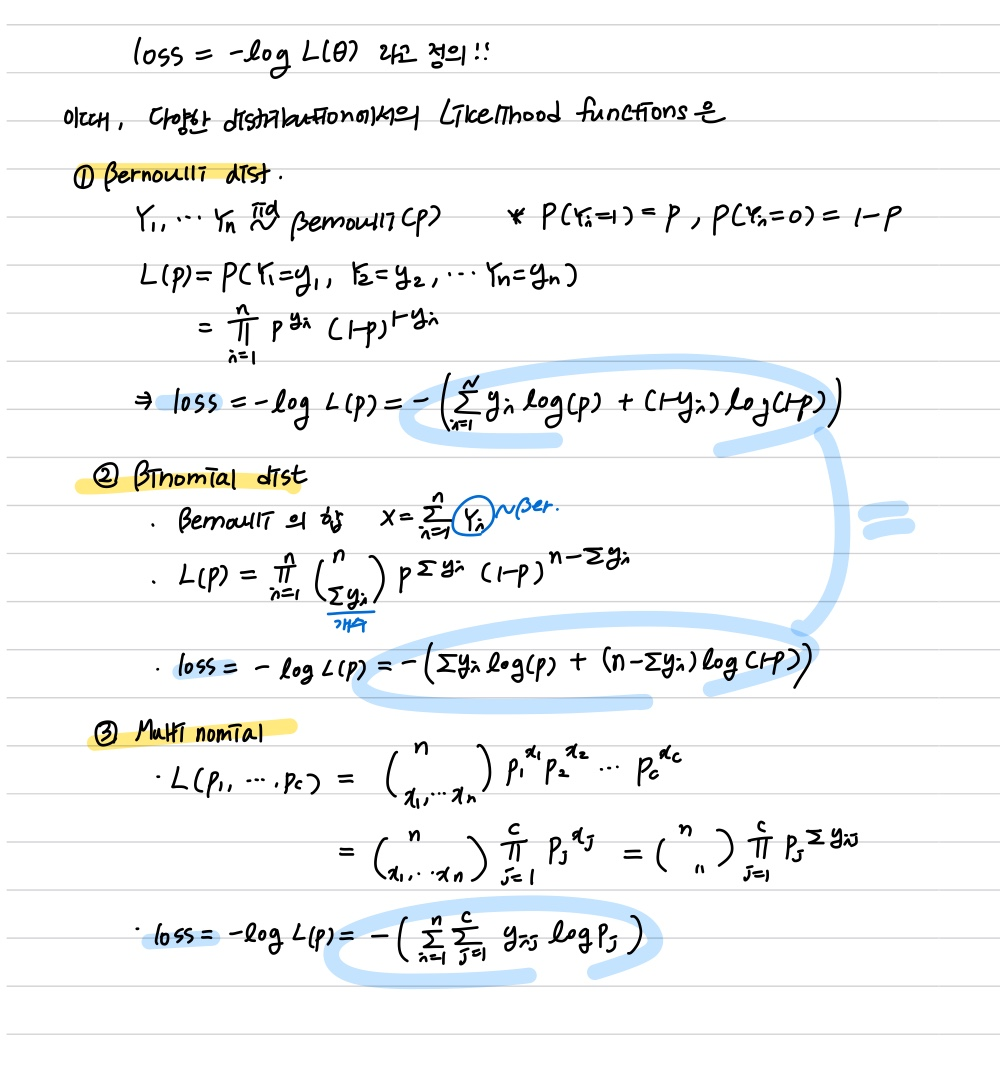 loss = -log L(θ) 라고 정의!!
이때, 다양한 distribution에서의 Likelihood functions은
① Bernoulli dist.
Y₁, ⋯ Yₙ iid ~ Bernoulli(p) * P(Yᵢ=1) = p, P(Yᵢ=0) = 1-p
L(p) = P(Y₁=y₁, Y₂=y₂, ⋯ Yₙ=yₙ)
= ∏_{i=1}^{n} p^{yᵢ} (1-p)^{1-yᵢ}
⇒ loss = -log L(p) = -(∑_{i=1}^{N} yᵢ log(p) + (1-yᵢ) log(1-p))
② Binomial dist
· Bernoulli의 합 X = ∑_{i=1}^{n} Yᵢ ~Ber.
· L(p) = ∏_{i=1}^{n} (n ∑yᵢ) p^{∑yᵢ} (1-p)^{n-∑yᵢ}
개수
=
· loss = - log L(p) = -(∑yᵢ log(p) + (n-∑yᵢ) log(1-p))
③ Multi nomial
· L(p₁, ⋯, p_c) = (n x₁, ⋯ xₙ) p₁^{x₁} p₂^{x₂} ⋯ p_c^{x_c}
= (n x₁, ⋯ xₙ) ∏_{j=1}^{c} p_j^{x_j} = (n 〃) ∏_{j=1}^{c} p_j^{∑y_{ij}}
· loss = -log L(p) = -(∑_{i=1}^{n} ∑_{j=1}^{c} y_{ij} log p_j)